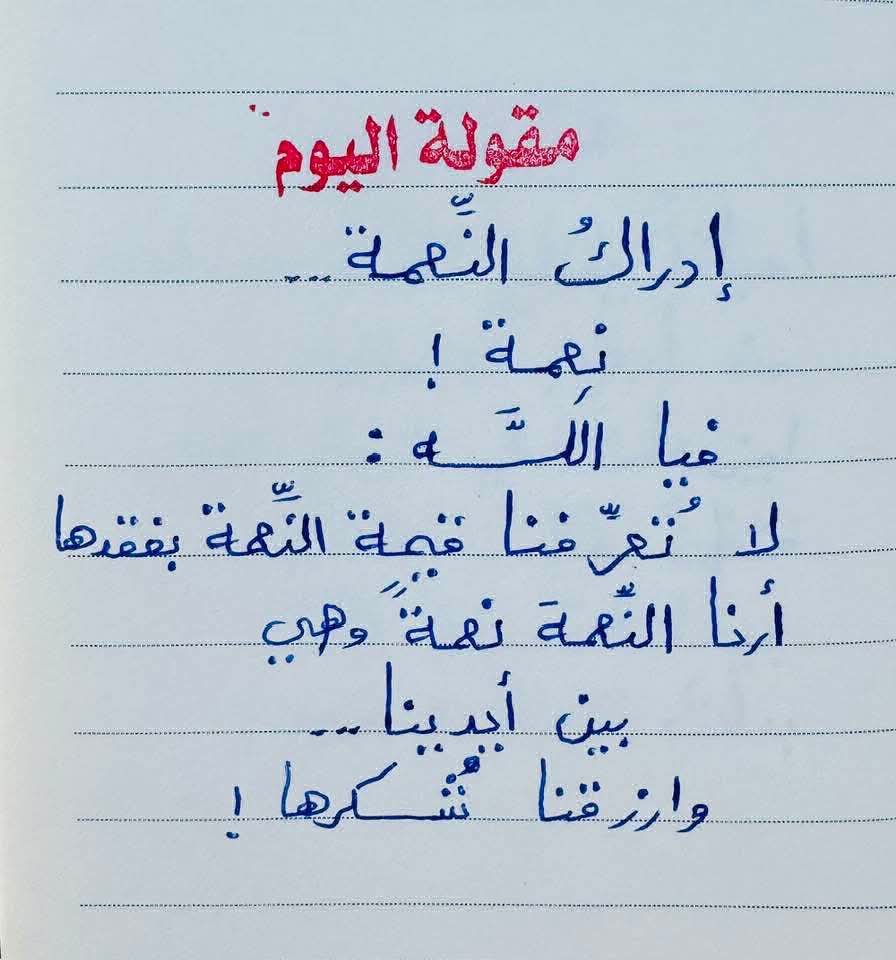 مقولة اليوم
إدراكُ النِّعمة...
نِعمة !
فيا اللَّـه :
لا تُعرِّفنا قيمة النِّعمة بفقدها
أرنا النِّعمَة نعمةً وهي
بين أيدينا...
وارزقنا شُكرها !